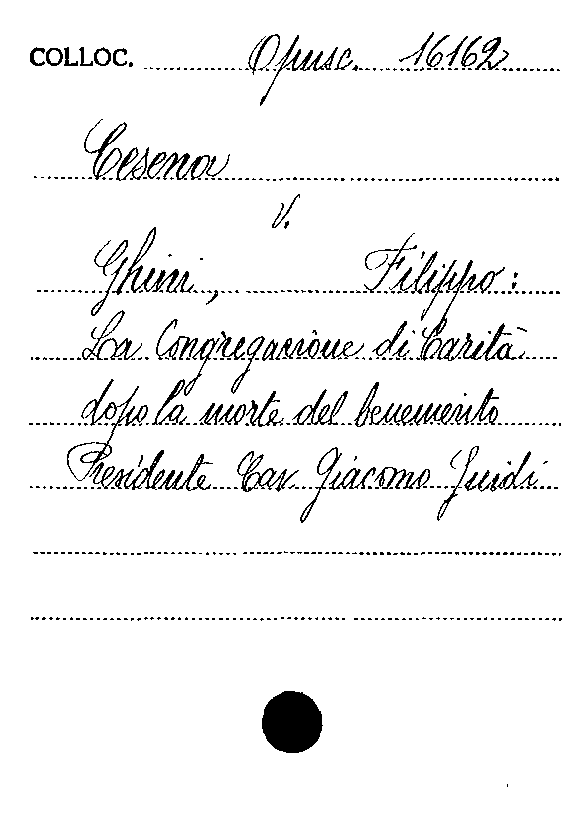 COLLOC. Opusc. 16162
Cesena
v.
Ghini, Filippo:
La Congregazione di Carità
dopo la morte del benemerito
Presidente Cav. Giacomo Guidi